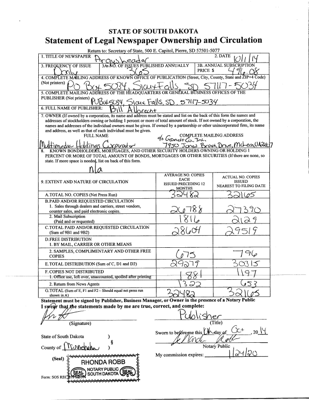 STATE OF SOUTH DAKOTA
Statement of Legal Newspaper Ownership and Circulation
Return to: Secretary of State, 500 E. Capitol, Pierre, SD 57501-5077
1. TITLE OF NEWSPAPER Argus Leader 2. DATE 10/1/14
3. FREQUENCY OF ISSUE 3A. NO. OF ISSUES PUBLISHED ANNUALLY 3B. ANNUAL SUBSCRIPTION
Daily 365 PRICE $
4. COMPLETE MAILING ADDRESS OF KNOWN OFFICE OF PUBLICATION (Street, City, County, State and ZIP+4 Code)
(Not printers) PO Box 5034, Sioux Falls, SD 57117-5034
5. COMPLETE MAILING ADDRESS OF THE HEADQUARTERS OR GENERAL BUSINESS OFFICES OF THE
PUBLISHER (Not printer) PO Box 5034, Sioux Falls, SD 57117-5034
6. FULL NAME OF PUBLISHER: Bill Albrecht
7. OWNER (If owned by a corporation, its name and address must be stated and list on the back of this form the names and
addresses of stockholders owning or holding 1 percent or more of total amount of stock. If not owned by a corporation, the
names and addresses of the individual owners must be given. If owned by a partnership or other unincorporated firm, its name
and address, as well as that of each individual must be given.
FULL NAME COMPLETE MAILING ADDRESS
Multimedia Holdings Corporation 7950 Jones Branch Drive, McLean, VA
8. KNOWN BONDHOLDERS, MORTGAGES, AND OTHER SECURITY HOLDERS OWNING OR HOLDING 1
PERCENT OR MORE OF TOTAL AMOUNT OF BONDS, MORTGAGES OR OTHER SECURITIES (If there are none, so
state. If more space is needed, list on back of this form.
n/a
9. EXTENT AND NATURE OF CIRCULATION
AVERAGE NO. COPIES EACH ISSUED PRECEDING 12 MONTHS
ACTUAL NO. COPIES ISSUED NEAREST TO FILING DATE
A. TOTAL NO. COPIES (Net Press Run) 32482 32165
B. PAID AND/OR REQUESTED CIRCULATION
1. Sales through dealers and carriers, street vendors,
counter sales, and paid electronic copies. 26788 27390
2. Mail Subscription
(Paid and or requested) 1816 2129
C. TOTAL PAID AND/OR REQUESTED CIRCULATION
(Sum of 9B1 and 9B2) 28604 29519
D. FREE DISTRIBUTION
1. BY MAIL, CARRIER OR OTHER MEANS
2. SAMPLES, COMPLIMENTARY AND OTHER FREE
COPIES 675 796
E. TOTAL DISTRIBUTION (Sum of C, D1 and D2) 29279 30315
F. COPIES NOT DISTRIBUTED
1. Office use, left over, unaccounted, spoiled after printing 1881 1197
2. Return from News Agents 1322 653
G. TOTAL (Sum of E, F1 and F2 - Should equal net press run
shown in A) 32482 32165
Statement must be signed by Publisher, Business Manager, or Owner in the presence of a Notary Public
I swear that the statements made by me are true, correct, and complete:
Publisher
(Signature) (Title)
State of South Dakota )
Sworn to before me this day of Oct, 2014
County of Minnehaha )
Notary Public
(Seal)
My commission expires:
RHONDA ROBB
NOTARY PUBLIC
SOUTH DAKOTA
SEAL
SEAL
Form: SOS